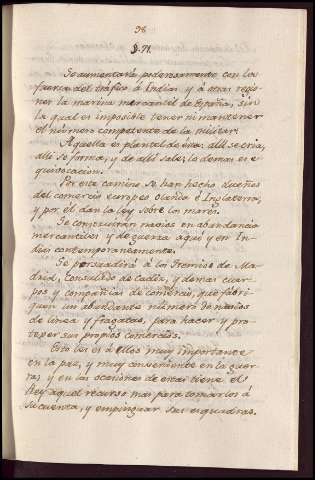 38
§. 71.
Se aumentaría poderosamente con los
fuerza del tráfico á Indias y á otras regio-
nes la marina mercantil de España, sin
la qual es imposible tener ni mantener
el número competente de la militar.
Aquella es plantel de ésta: allí se cria,
allí se forma, y de allí sale; lo demas es e-
quivocacion.
Por este camino se han hecho dueños
del comercio europeo Olanda é Inglaterra,
y por él dan la ley sobre los mares.
Se construirán navios en abundancia
mercantiles y de guerra aquí y en In-
dias contemporaneamente.
Se persuadirá á los Gremios de Ma-
drid, Consulado de Cadiz, y demas cuer-
pos y compañías de comercio, que fabri-
quen un abundante número de navios
de linea y fragatas, para hacer y pro-
texer sus propios comercios.
Esto les es á ellos muy importante
en la paz, y muy conveniente en la guer-
ra; y en las ocasiones de esta tiene el
Rey aquel recurso mas para tomarlos á
su cuenta, y empinguar sus esquadras.